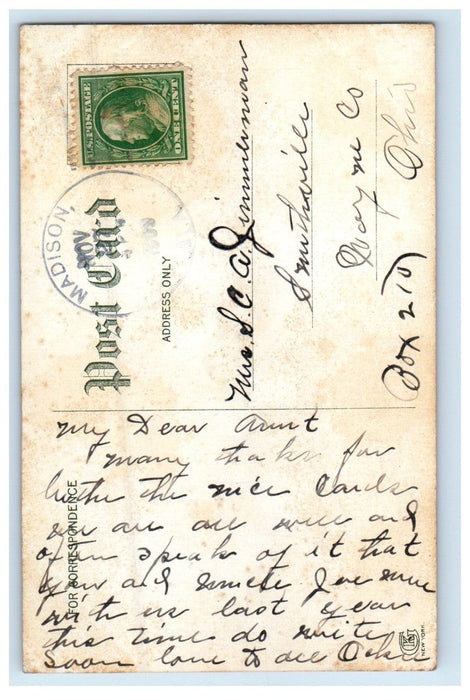 U.S. POSTAGE
ONE CENT
MADISON,
NOV
Post Card
ADDRESS ONLY
Mrs. S. C. A. Zimmerman
Smithville
Wayne Co
Ohio
Box 210
FOR CORRESPONDENCE
My Dear Aunt
Many thaks for
bothe the nice Cards
we are all well and
ofen speak of it that
you and Uncle Joe was
with us last year
this time do write
Soon love to all
NEW YORK.